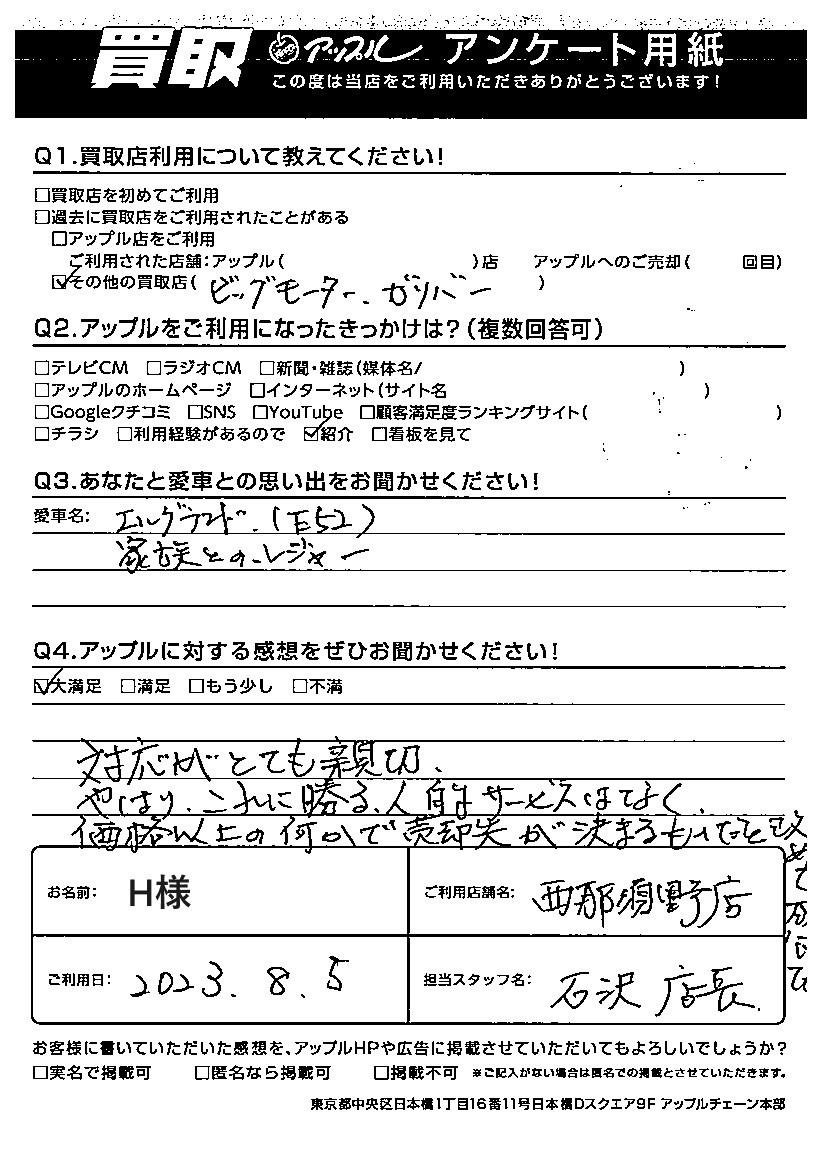 買取 アップル アンケート用紙
この度は当店をご利用いただきありがとうございます!
Q1.買取店利用について教えてください!
□買取店を初めてご利用
□過去に買取店をご利用されたことがある
□アップル店をご利用
ご利用された店舗:アップル( )店 アップルへのご売却( 回目)
☑その他の買取店( ビッグモーター、ガリバー )
Q2.アップルをご利用になったきっかけは?(複数回答可)
□テレビCM □ラジオCM □新聞・雑誌(媒体名/ )
□アップルのホームページ □インターネット(サイト名 )
□Googleクチコミ □SNS □YouTube □顧客満足度ランキングサイト( )
□チラシ □利用経験があるので ☑紹介 □看板を見て
Q3.あなたと愛車との思い出をお聞かせください!
愛車名: エルグランド.(E52)
家族とのレジャー
Q4.アップルに対する感想をぜひお聞かせください!
☑大満足 □満足 □もう少し □不満
対応がとても親切、
やはり、これに勝る、人的サービスはなく、
価格以上の何かで売却先が決まるものだと改めて
お名前: H様
ご利用店舗名: 西那須野店
ご利用日: 2023.8.5
担当スタッフ名: 石沢 店長
お客様に書いていただいた感想を、アップルHPや広告に掲載させていただいてもよろしいでしょうか?
□実名で掲載可 □匿名なら掲載可 □掲載不可 ※ご記入がない場合は匿名での掲載とさせていただきます。
東京都中央区日本橋1丁目16番11号日本橋Dスクエア9F アップルチェーン本部